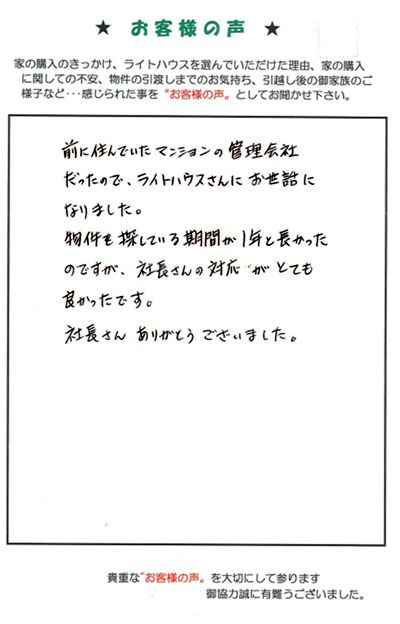 ★ お客様の声 ★
家の購入のきっかけ、ライトハウスを選んでいただけた理由、家の購入
に関しての不安、物件の引渡しまでのお気持ち、引越し後の御家族のご
様子など･･･感じられた事を〝お客様の声〟としてお聞かせ下さい。
前に住んでいたマンションの管理会社
だったので、ライトハウスさんにお世話に
なりました。
物件を探している期間が1年と長かった
のですが、社長さんの対応がとても
良かったです。
社長さんありがとうございました。
貴重な〝お客様の声〟を大切にして参ります
御協力誠に有難うございました。